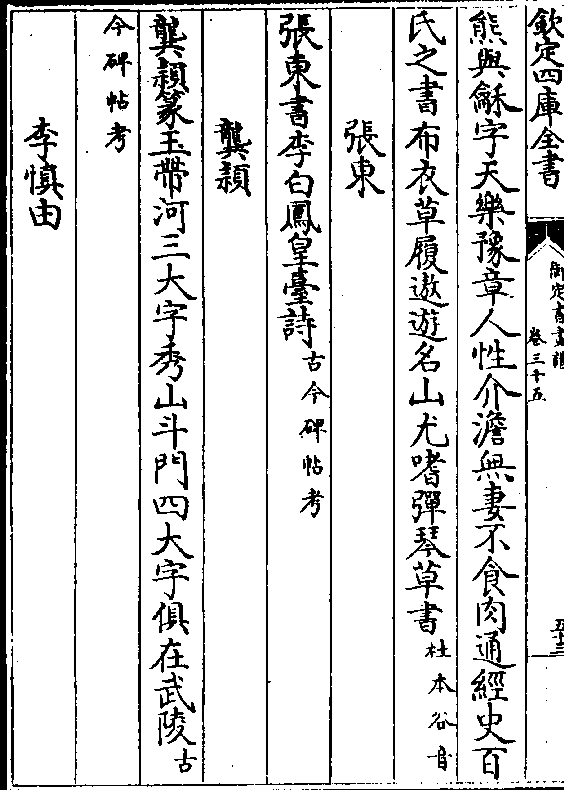 欽定四庫全書
御定書畫譜
卷三十五
五十三
熊與龢字天樂豫章人性介澹無妻不食肉通經史百
氏之書布衣草履遨遊名山尤嗜彈琴草書杜本谷音
張東
張東書李白鳳皇臺詩古今碑帖考
龔穎
龔穎篆玉帶河三大字秀山斗門四大字俱在武陵古
今碑帖考
李慎由